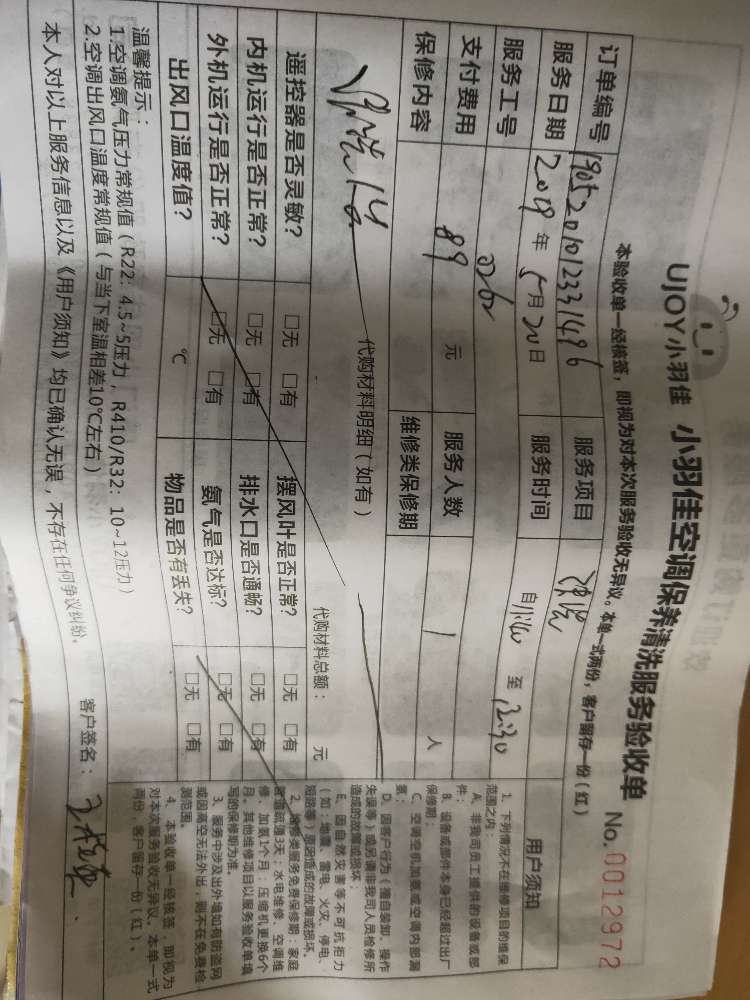 UJOY小羽佳 小羽佳空调保养清洗服务验收单
No.0012972
本验收单一经核签，即视为对本次服务验收无异议。本单一式两份，客户留存一份(红)
订单编号 190520101233 1496 服务项目 清洗
服务日期 2019年5月20日 服务时间 至12:30
服务工号 0262
支付费用 89元 服务人数 1人
保修内容 维修类保修期
代购材料明细(如有)
代购材料总额： 元
遥控器是否灵敏？ □无 □有 摆风叶是否正常？ □无 □有
内机运行是否正常？ □无 □有 排水口是否通畅？ □无 □有
外机运行是否正常？ □无 □有 氨气是否达标？ □无 □有
出风口温度值？ ℃ 物品是否有丢失？ □无 □有
用户须知
1、下列情况不在维修项目的维保
范围之内：
A、非我司员工提供的设备或部
件；
B、设备或部件本身已经超过出厂
保修期；
C、空调空机加氨或空调内部漏
氨；
D、因客户行为(擅自装卸、操作
失误等)或另请非我司人员检修所
造成的故障或损坏；
E、因自然灾害等不可抗拒力
(如：地震、雷电、火灾、停电、
短路等)原因造成的故障或损坏。
2、维修类服务免费保修期：家庭
管道疏通3天；水电维修、空调维
修、加氨1个月；压缩机更换6个
月。其他维修项目以服务验收单填
写的保修期为准。
3、服务中涉及出外墙如有防盗网
或因高空无法外出，则不在免费检
测范围。
4、本验收单一经核签，即视为
对本次服务验收无异议。本单一式
两份，客户留存一份(红)。
温馨提示：
1.空调氨气压力常规值(R22：4.5~5压力，R410/R32：10~12压力)
2.空调出风口温度常规值(与当下室温相差10℃左右)
本人对以上服务信息以及《用户须知》均已确认无误，不存在任何争议纠纷。
客户签名：